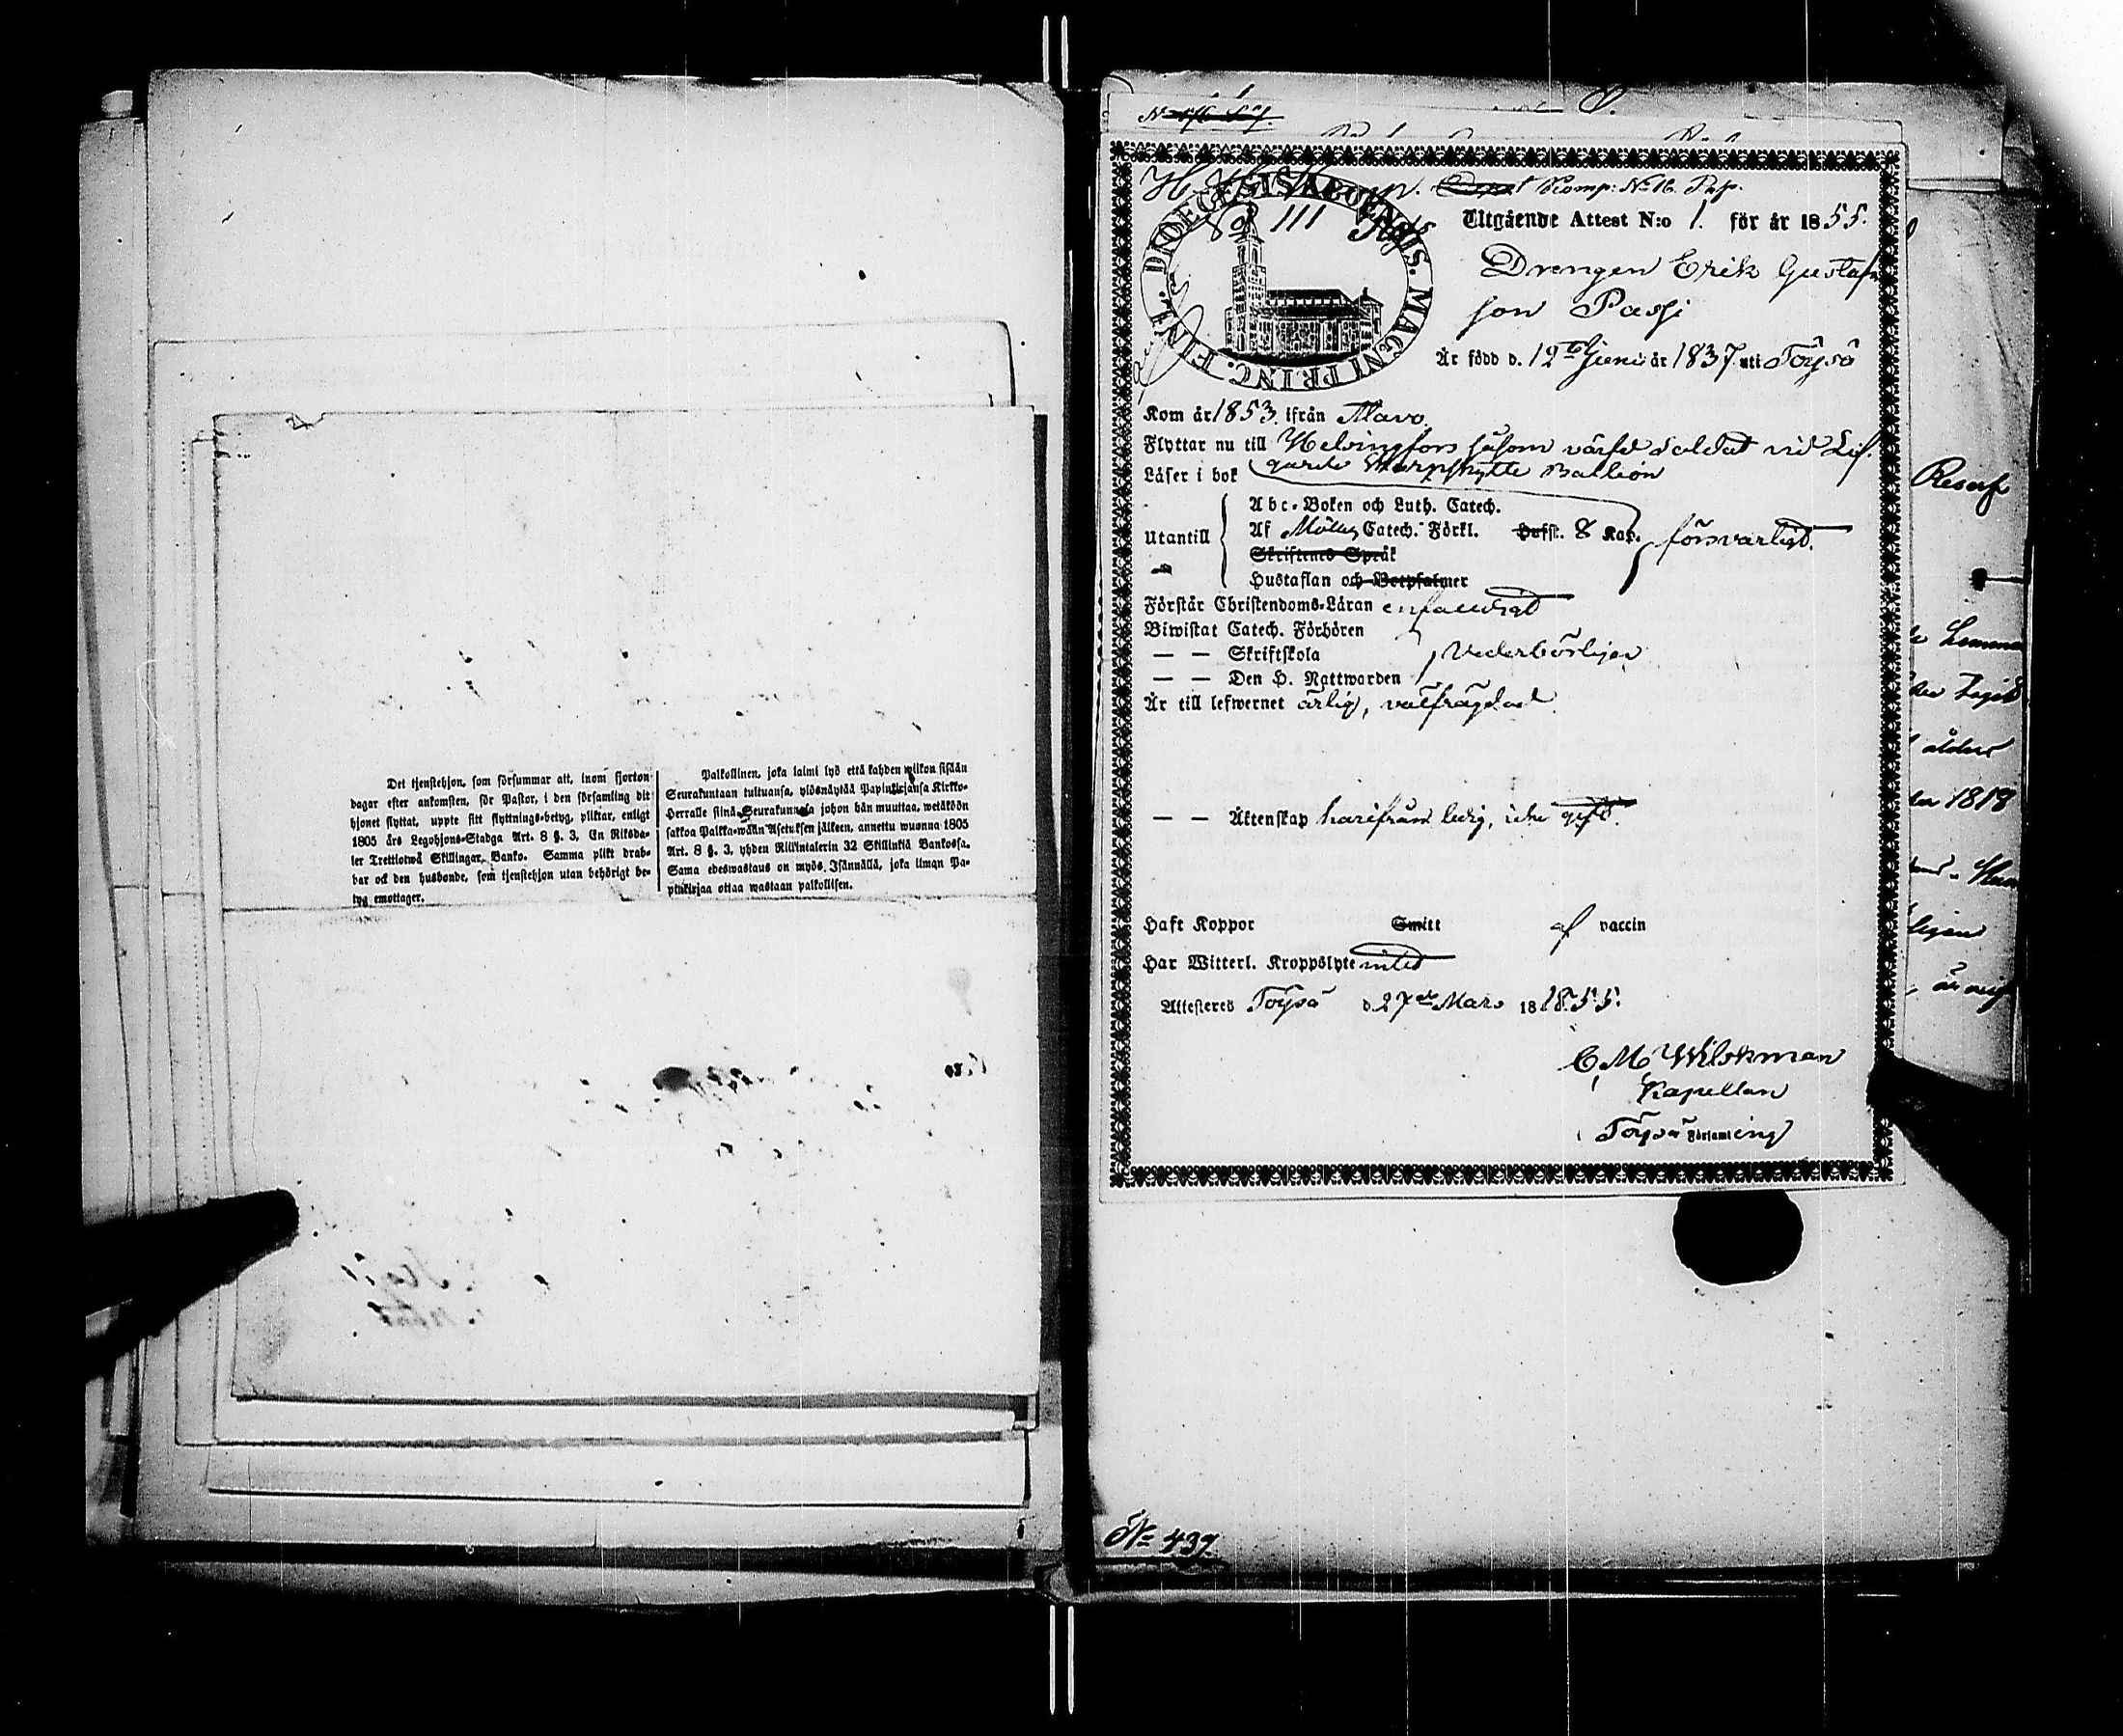 Det tjenstehjon, som försummar att, inom fjorton
dagar efter ankomsten, för Pastor, i den församling dit
hjonet flyttat, uppte sitt flyttnings-betyg, pliktar, enligt
1805 års Legohjons-Stadga Art. 8 §. 3, En Riksda-
ler Trettiotwå Skillingar Banko. Samma plikt drab-
bar ock den husbonde, som tjenstehjon utan behörigt be-
tyg emottager.
Palkollinen, joka laimi lyö että kahden wiikon sisään
Seurakuntaan tultuansa, ylösnäytää Papinkirjansa Kirkko-
Herralle siinä Seurakunnala johon hän muuttaa, wetäköön
sakkoa Palkka-wäön Asetuksen jälkeen, annettu wuonna 1805
Art. 8 §. 3, yhden Riikintalerin 32 Skillinkiä Bankossa.
Sama edeswastaus on myös Isännällä, joka ilman Pa-
pinkirjaa ottaa wastaan palkollisen.
Komp: No 16. Pap.
DIOECESIS ABOENSIS. MAGNI PRINC. FINL.
111
Utgående Attest N:o 1. för år 1855.
Drengen Erik Gustaf
son Passi
Är född d. 12te Juni år 1837 uti Töysä
Kom år 1853. ifrån Alavo.
Flyttar nu till Helsingfors såsom värfd soldat vid Lif.
garde Skarpskytte Battion
Läser i bok
Utantill
Abc-Boken och Luth. Catech.
Af Möllers Catech. Förkl. Hufst. 8 Kap. försvarligt.
Skriftenes Språk
Hustaflan och Botpsalmer
Förstår Christendoms-Läran enfaldigt
Biwistat Catech. Förhören
— — Skriftskola vederbörligen
— — Den H. Nattwarden
Är till lefwernet ärlig, välfrägdad
— — Äktenskap härifrån ledig, icke gift.
Haft Koppor Smitt af vaccin
Har Witterl. Kroppslyte intet
Attesteres Töysä d. 27de Mars 18 1855.
C. M. Wilskman
Kapellan
Töysä Församling
Reserf
ålder
1818
ligen
No 437.